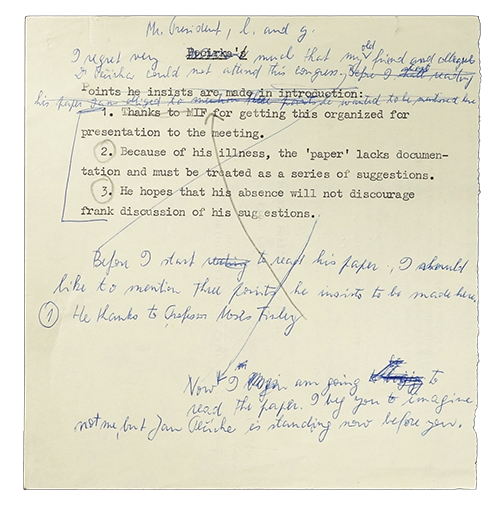 Mr. President, l. and g.
I regret very much that my old friend and colleague
Pečirka's
Dr Pečírka could not attend this congress. Before I start reading
Points he insists are made in introduction:
his paper I am obliged to mention three points he wanted to be mentioned here
1. Thanks to MIF for getting this organized for
presentation to the meeting.
2. Because of his illness, the 'paper' lacks documen-
tation and must be treated as a series of suggestions.
3. He hopes that his absence will not discourage
frank discussion of his suggestions.
Before I start reading to read his paper, I should
like to mention three points he insists to be made here.
1 He thanks to Professor Moses Finley
Now I am going to
read the paper. I beg you to imagine
not me, but Jan Pečírka is standing now before you.